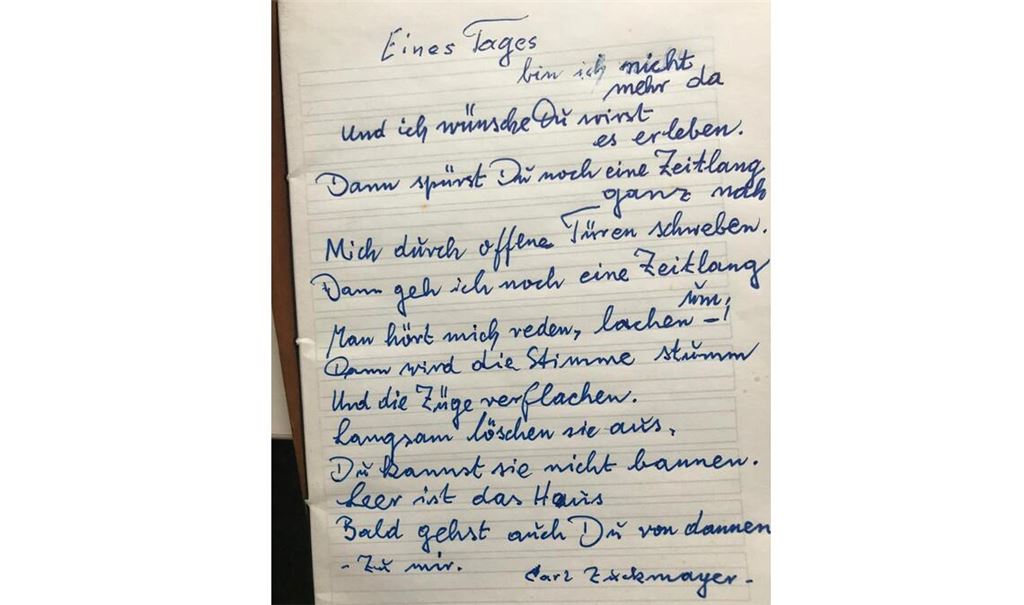 Eines Tages
bin ich nicht
mehr da
Und ich wünsche Du wirst
es erleben.
Dann spürst Du noch eine Zeitlang
ganz nah
Mich durch offene Türen schweben.
Dann geh ich noch eine Zeitlang
um,
Man hört mich reden, lachen –!
Dann wird die Stimme stumm
Und die Züge verflachen.
Langsam löschen sie aus,
Du kannst sie nicht bannen.
Leer ist das Haus
Bald gehst auch Du von dannen
- Zu mir.
Carl Zuckmayer -